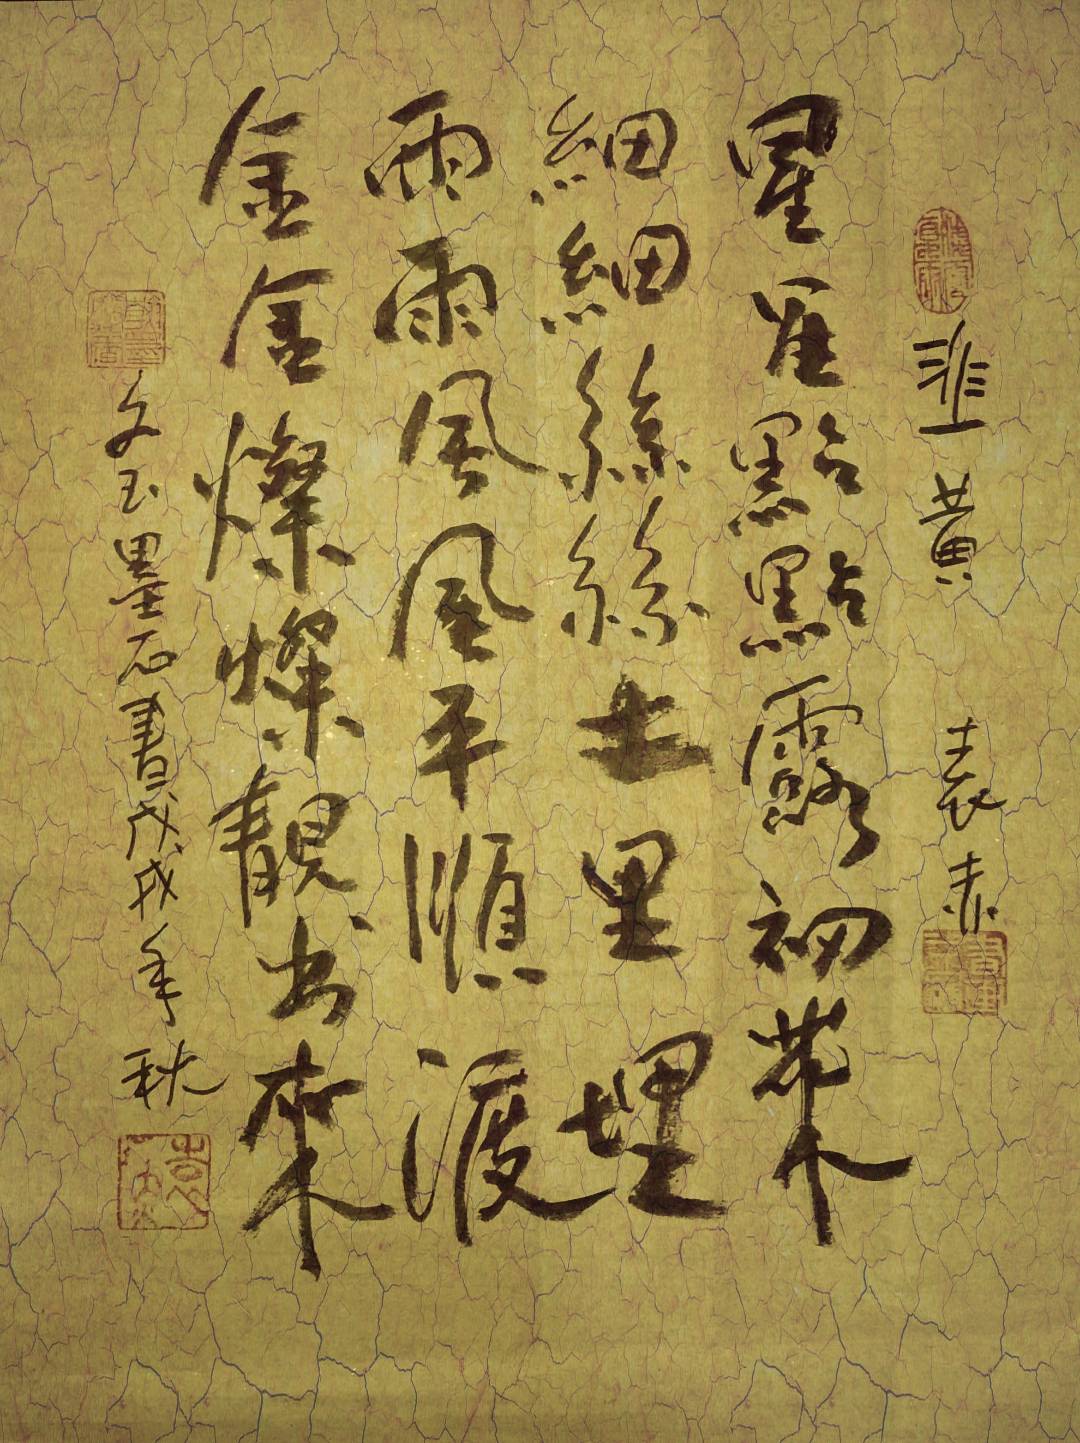 韭黄 袁赤
星星點點露初
細細絲絲土里埋
雨雨風風平順渡
金金燦燦靚出來
文玉墨石書戊戌年秋